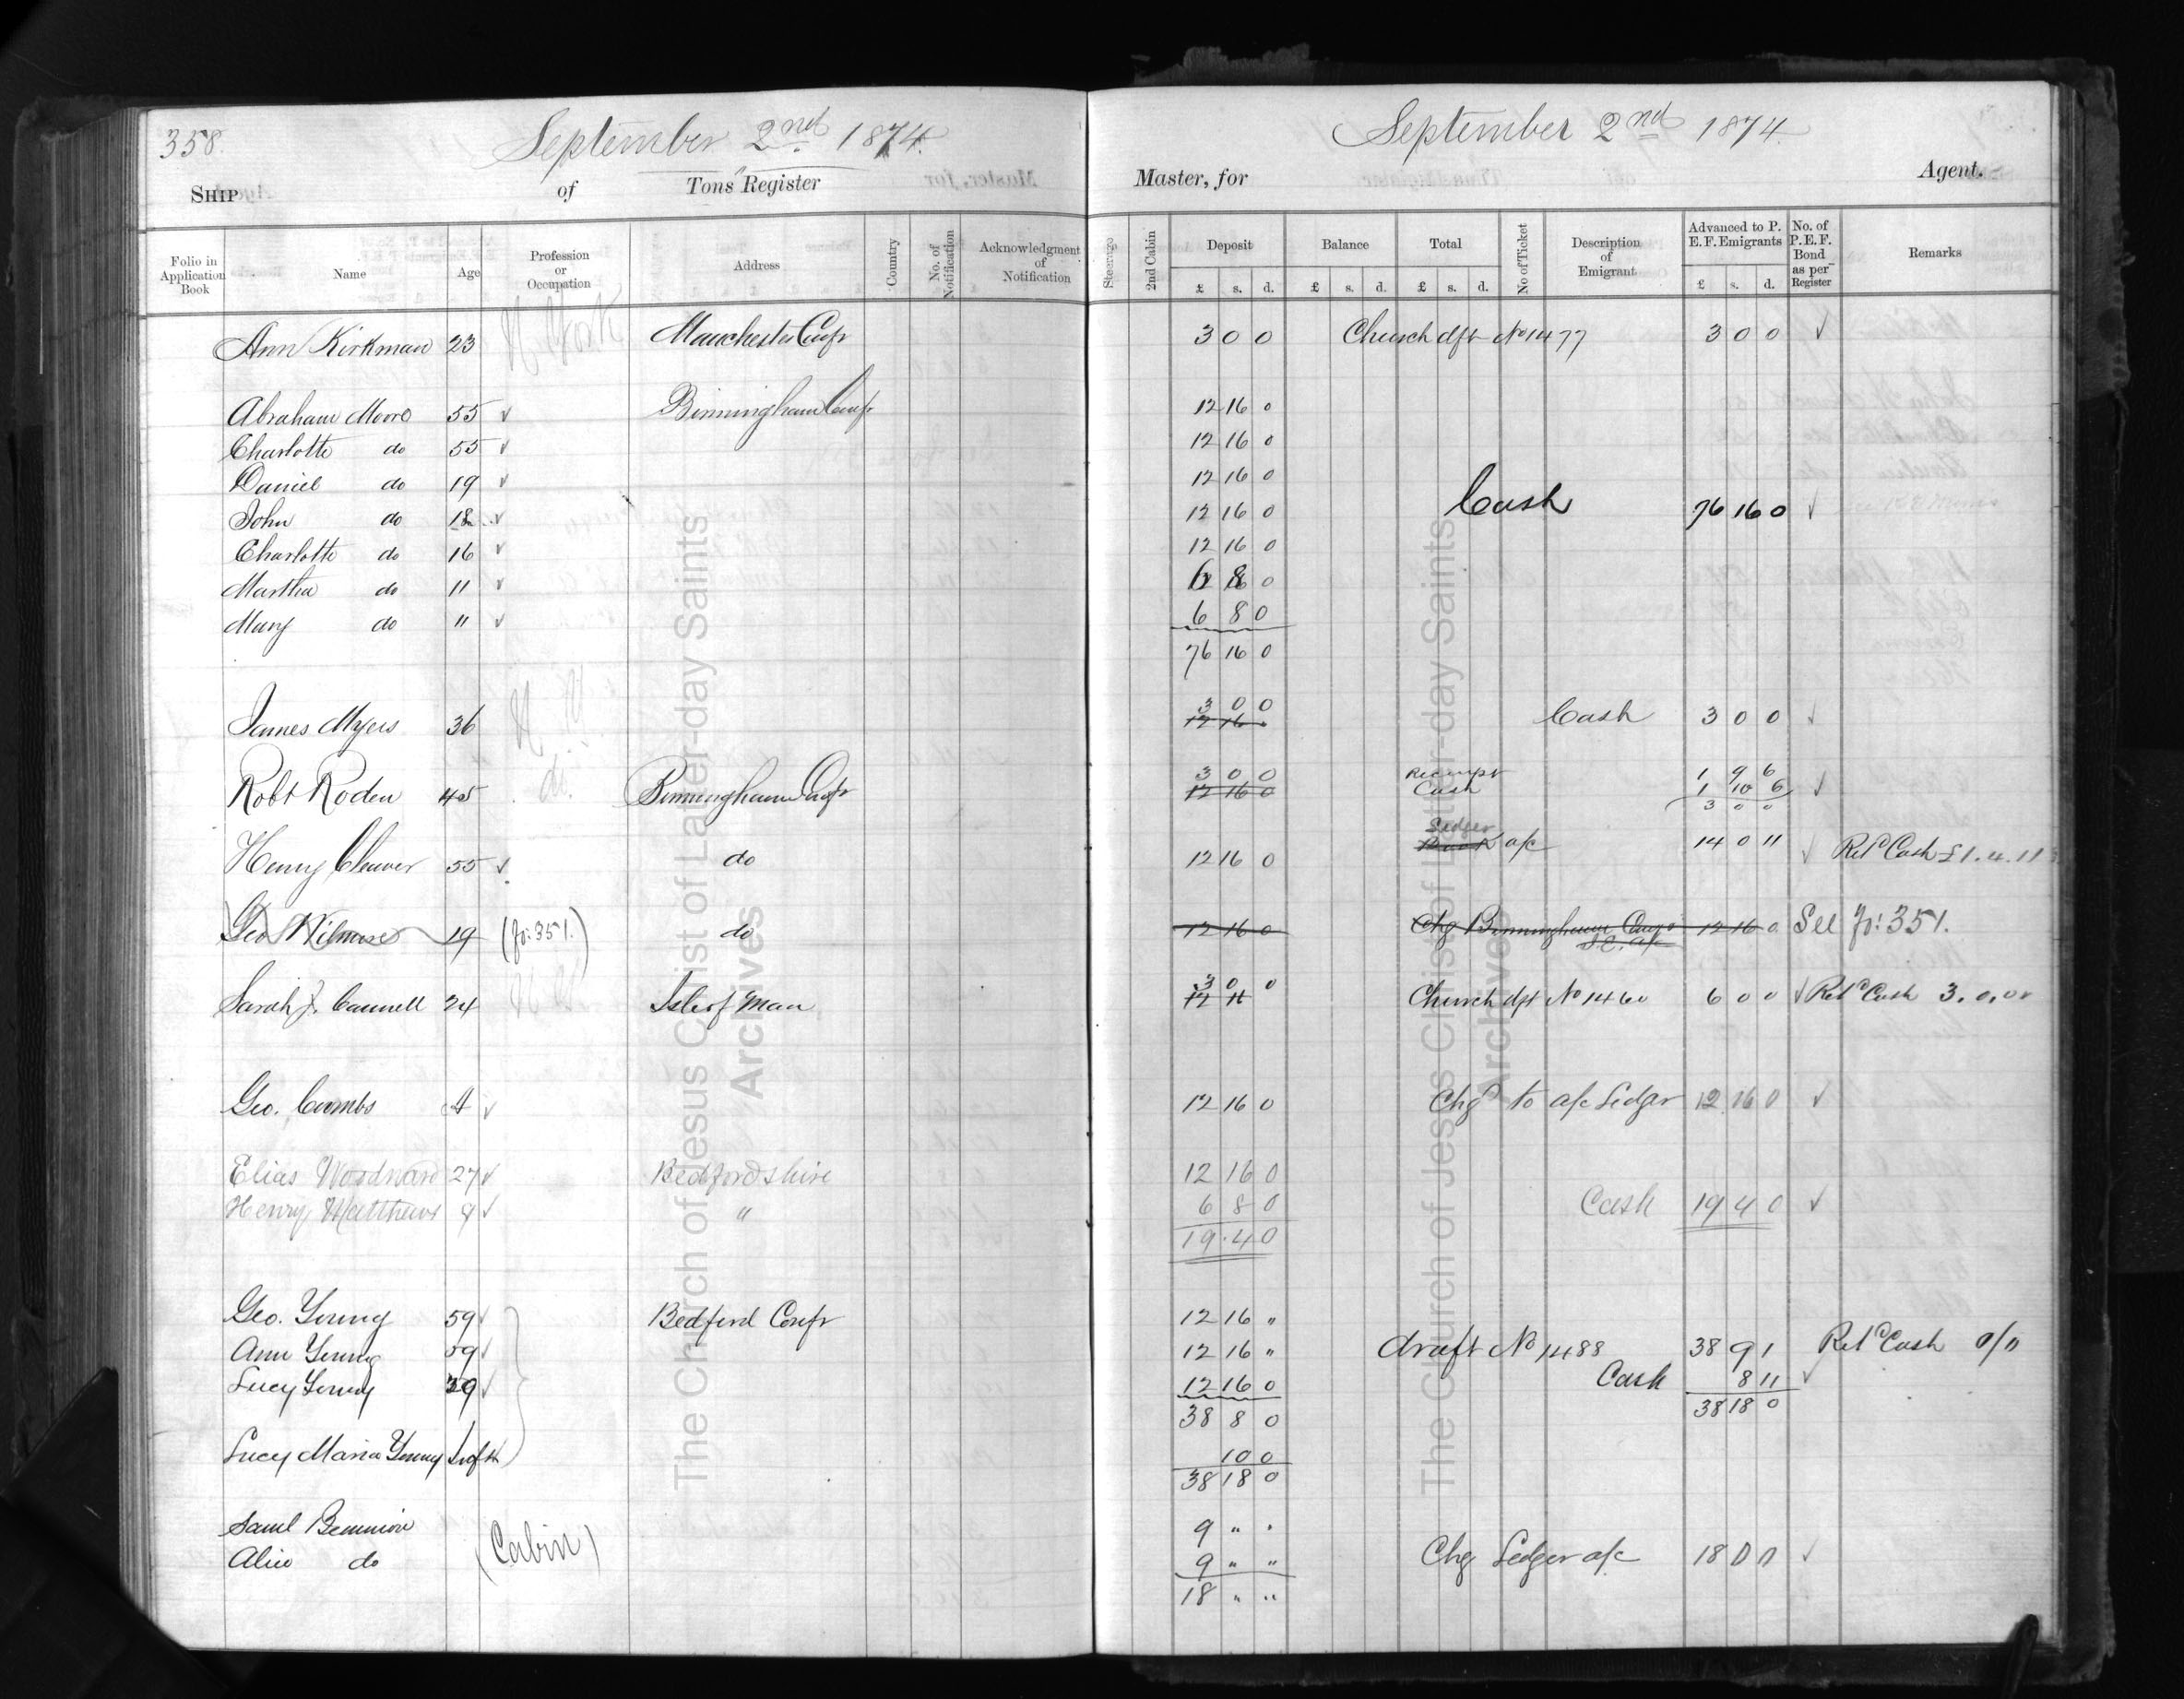 358.
September 2nd 1874.
September 2nd 1874.
SHIP of Tons Register
Master, for Agent.
Folio in Application Book Name Age Profession or Occupation Address Country No. of Notification Acknowledgment of Notification
Steerage 2nd Cabin Deposit Balance Total No of Ticket Description of Emigrant Advanced to P. E. F. Emigrants No. of P. E. F. Bond as per Register Remarks
£ s. d. £ s. d. £ s. d. £ s. d.
Ann Kirkman 23 N. York Manchester Confr 3 0 0 Church dft No 1477 3 0 0 ✓
Abraham Moore 55 ✓ Birmingham Confr 12 16 0
Charlotte do 55 ✓ 12 16 0
Daniel do 19 ✓ 12 16 0
John do 18 ✓ 12 16 0 Cash 76 16 0 ✓
Charlotte do 16 ✓ 12 16 0
Martha do 11 ✓ 6 8 0
Mary do 11 ✓ 6 8 0
76 16 0
3 0 0
James Myers 36 N. Y. 12 16 Cash 3 0 0 ✓
3 0 0 Receipt 1 9 6
Robt Roden 45 do. Birmingham Confr 12 16 0 Cash 1 10 6 ✓
3 0 0
Ledger
Henry Cleaver 55 ✓ do 12 16 0 a/c 14 0 11 ✓ Retd Cash £1.4.11
Geo 19 (fo: 351.) do 12 16 0 Chg Birmingham 12 16 0 See fo: 351.
a/c
3 0 0
Sarah J. Cannell 24 Isle of Man 12 Church dft No 1460 6 0 0 ✓ Retd Cash 3.0.0
Geo. Combs A ✓ 12 16 0 Chgd to a/c Ledger 12 16 0 ✓
Elias Woodward 27 ✓ Bedfordshire 12 16 0
Henry Matthews 9 ✓ " 6 8 0 Cash 19 4 0 ✓
19.4 0
Geo. Young 59 ✓ Bedford Confr 12 16 "
Ann Young 59 ✓ 12 16 " draft No 1488 38 9 1 Retd Cash 0/0
Lucy Young 39 ✓ 12 16 0 Cash 8 11 ✓
38 8 0 38 18 0
Lucy Maria Young Inft 10 0
38 18 0
Saml Bennion 9 " "
Alice do (Cabin) 9 " " Chg Ledger a/c 18 0 0 ✓
18 " "
The Church of Jesus Christ of Latter-day Saints
Archives
The Church of Jesus Christ of Latter-day Saints
Archives